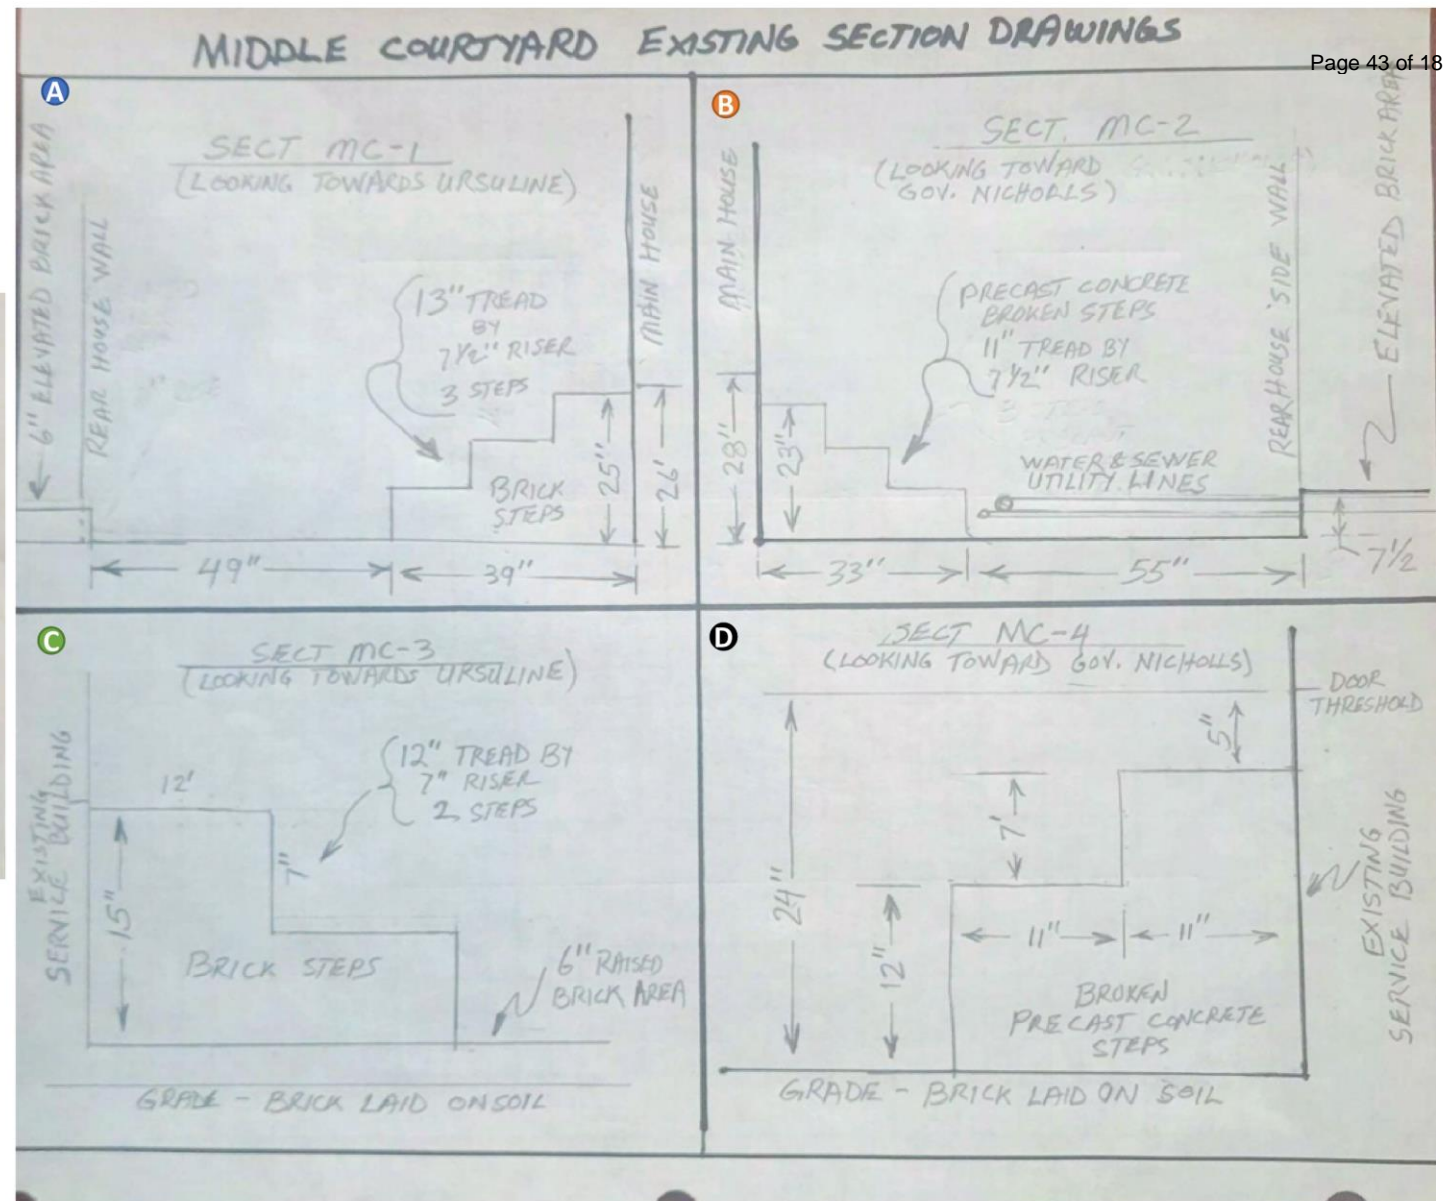 MIDDLE COURTYARD EXISTING SECTION DRAWINGS
Page 43 of 18
A
SECT MC-1
(LOOKING TOWARDS URSULINE)
6" ELEVATED BRICK AREA
REAR HOUSE WALL
13" TREAD
BY
7 1/2" RISER
3 STEPS
MAIN HOUSE
BRICK
STEPS
25"
26'
49"
39"
B
SECT. MC-2
(LOOKING TOWARD
GOV. NICHOLLS)
MAIN HOUSE
PRECAST CONCRETE
BROKEN STEPS
11" TREAD BY
7 1/2" RISER
REARHOUSE SIDE WALL
ELEVATED BRICK AREA
28"
23"
WATER & SEWER
UTILITY LINES
33"
55"
7 1/2
C
SECT MC-3
(LOOKING TOWARDS URSULINE)
EXISTING
SERVICE BUILDING
12'
12" TREAD BY
7" RISER
2 STEPS
7"
15"
BRICK STEPS
6" RAISED
BRICK AREA
GRADE - BRICK LAID ON SOIL
D
SECT MC-4
(LOOKING TOWARD GOV. NICHOLLS)
DOOR
THRESHOLD
5"
7'
24"
12"
11"
11"
BROKEN
PRECAST CONCRETE
STEPS
EXISTING
SERVICE BUILDING
GRADE - BRICK LAID ON SOIL